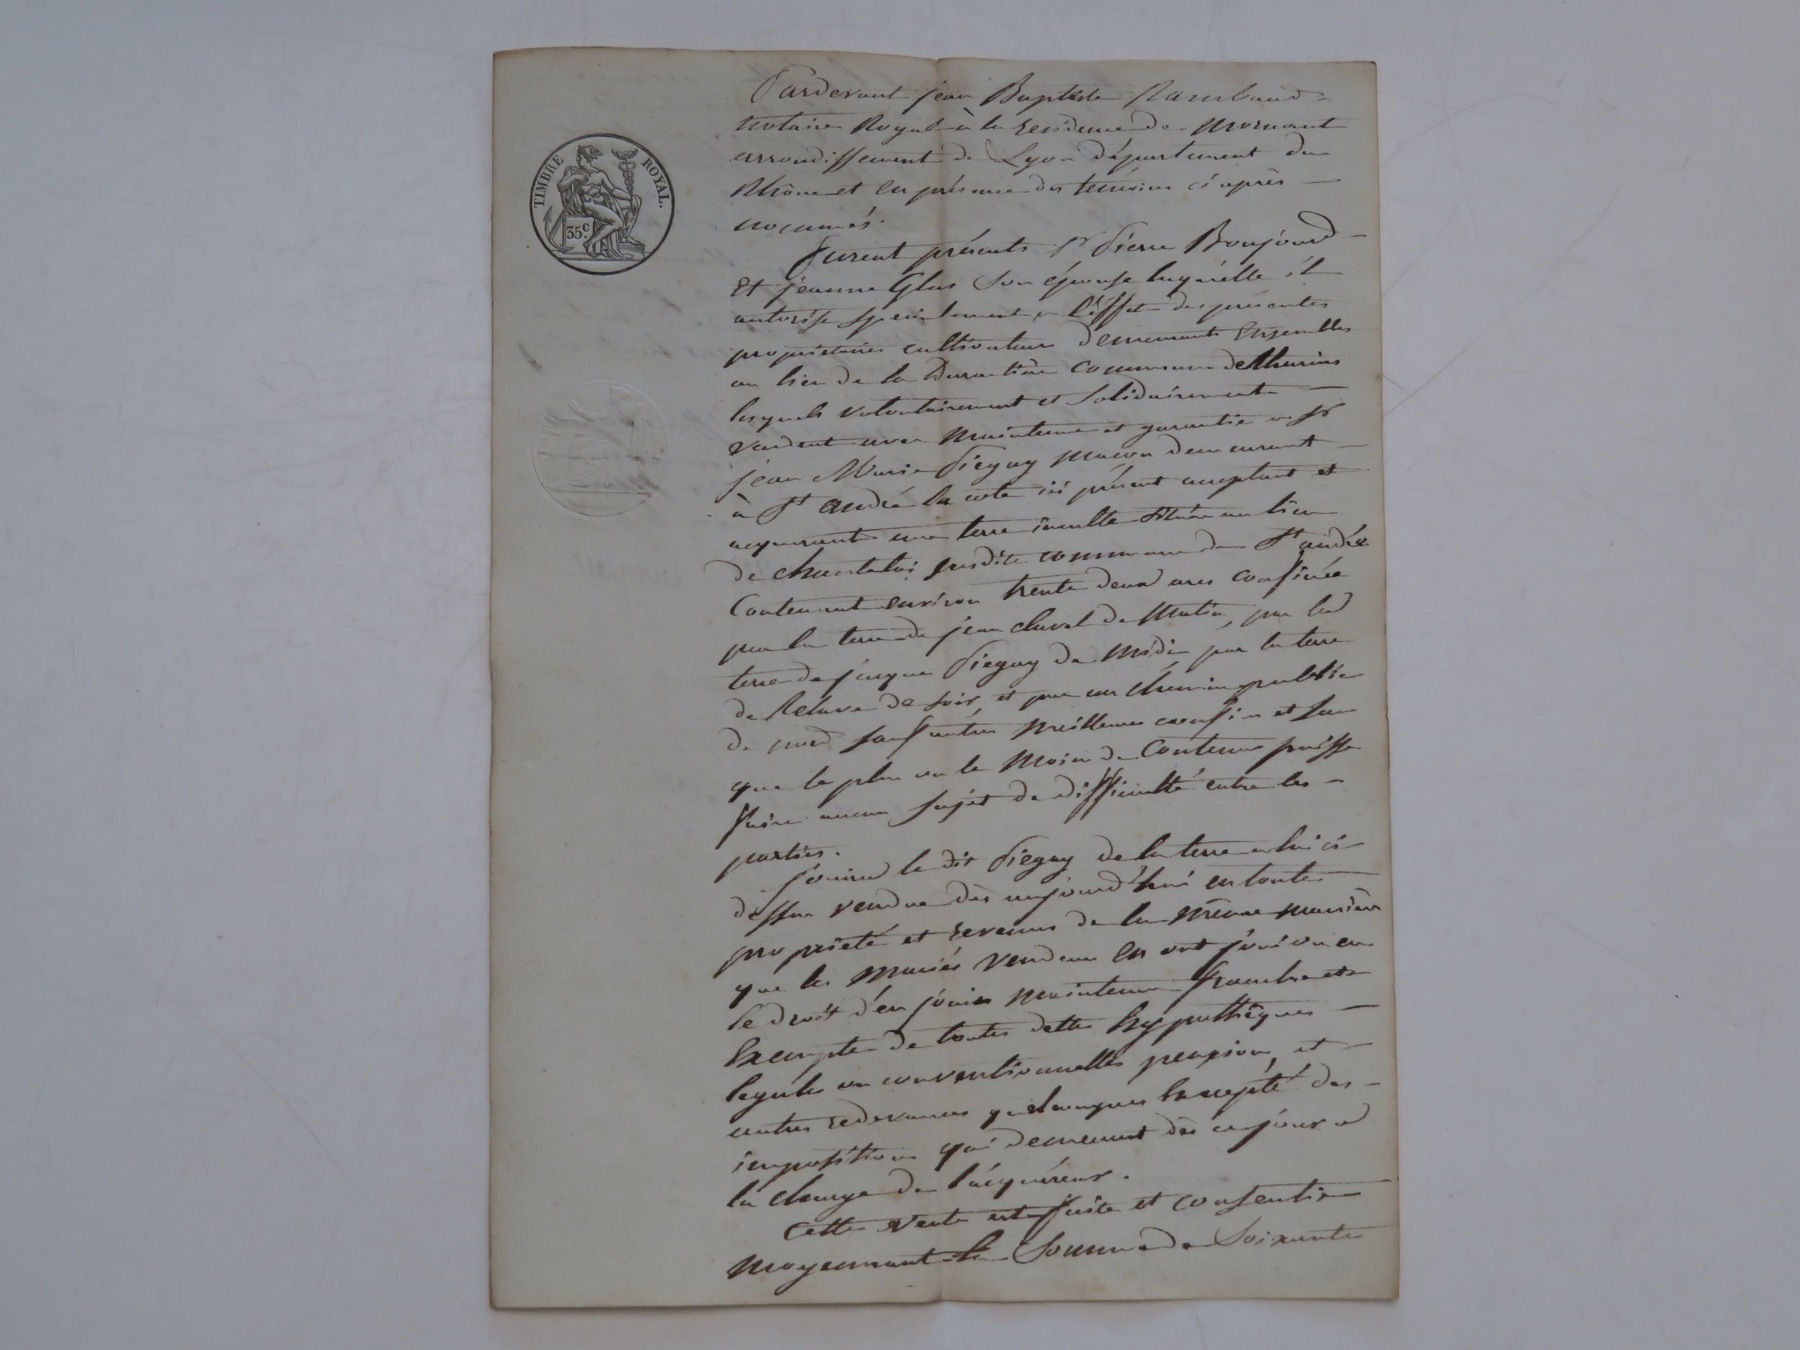 TIMBRE ROYAL.
35c.
Pardevant jean Baptiste Rambaud
Notaire Royal à la résidence de Mornant
arrondissement de Lyon département du
Rhône et en présence des témoins ci après
nommés.
furent présents sr Pierre Boujourd
Et jeanne Glas Son épouse laquelle il
autorise spécialement a l'effet des présentes
propriétaires cultivateurs demeurants Ensembles
au lieu de la Durantière commune de thurins
lesquels volontairement et solidairement
vendent avec Maintenue et garantie a sr
jean Marie Pieguy Macon demeurant
à St andré la cote ici présent acceptant et
acquerant une terre inculte située au lieu
de chantelois susdite commune de St andré
Contenant environ trente deux ares confinée
par la terre de jean claval de Matin, par la
terre de jacque Pieguy de Midi par la terre
de de soir, et par un chemin public
de nord sauf autres Meilleures confins et sans
que le plus ou le Moins de Contenue puisse
faire aucun sujet de difficulté entre les
parties.
Jouira le dit Pieguy de la terre a lui ci
dessus vendue dès aujourd'hui en toute
propriété et revenus de la Même Manière
que les Mariés Vendeurs En ont joui ou eu
le droit d'en jouir Maintenue franche et
Exempte de toutes dettes hyppothèques
légales ou conventionnelles pension, et
autres redevances quelconques Excepté des
impositions qui demeurent dès ce jour a
la charge de l'acquéreur.
Cette vente est faite et consentie
Moyennant la Somme de Soixante